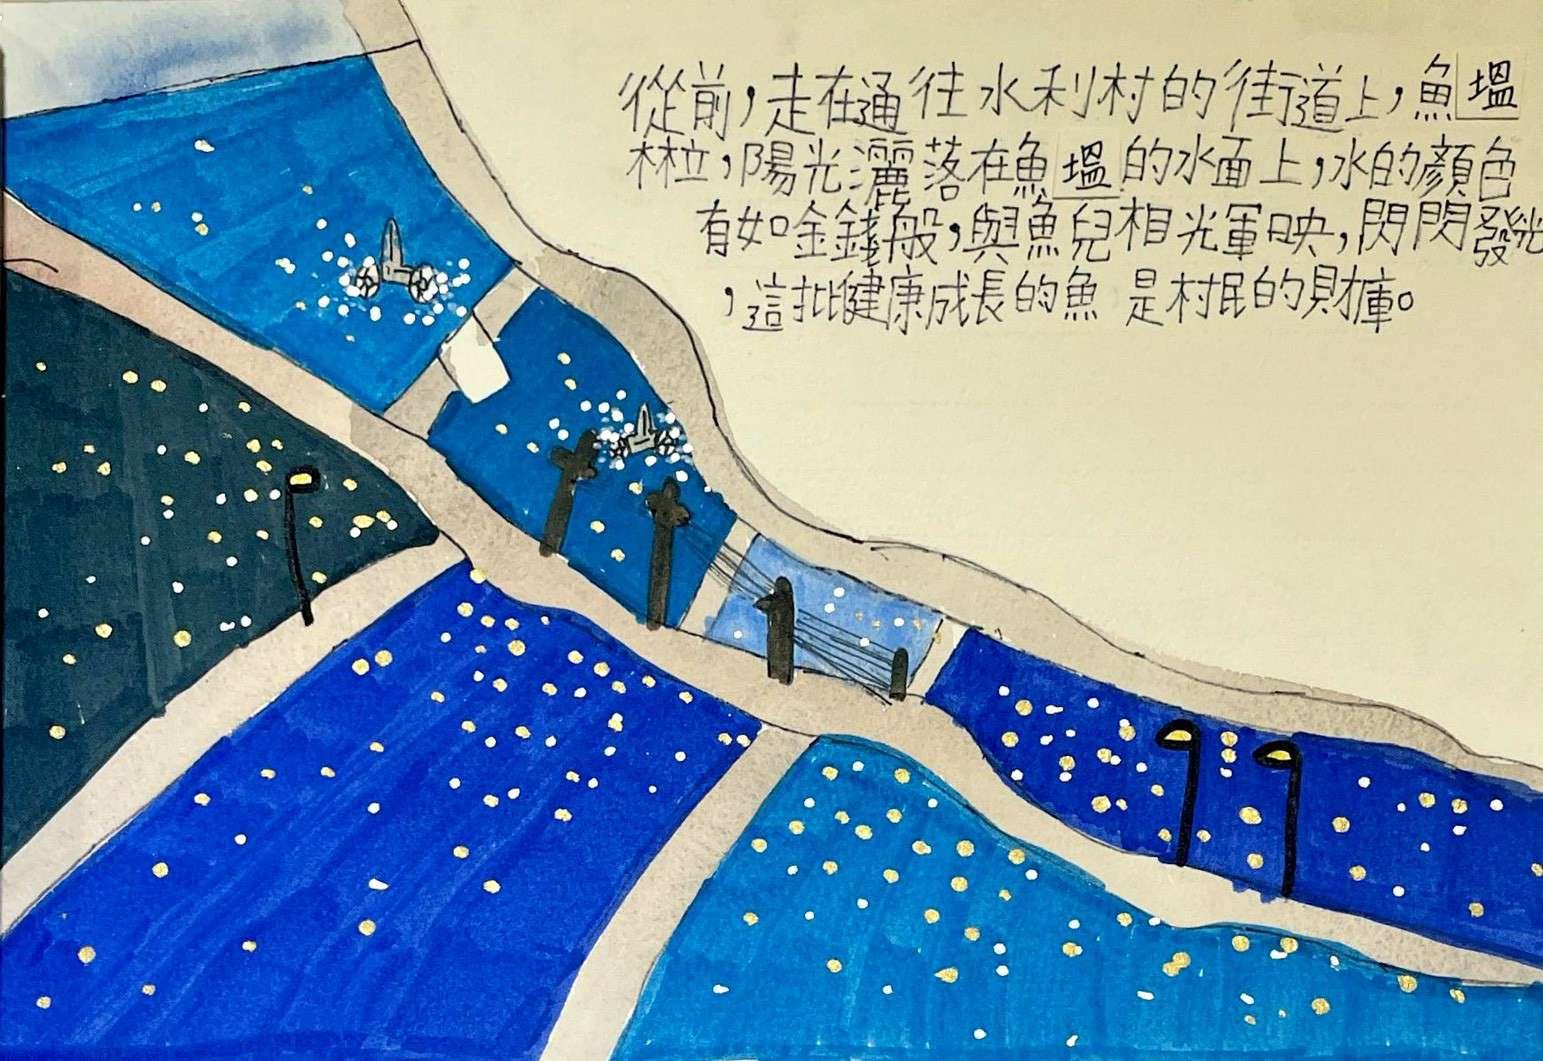 從前，走在通往水利村的街道上，魚塭
林立，陽光灑落在魚塭的水面上，水的顏色
有如金錢般，與魚兒相光軍映，閃閃發光
，這批健康成長的魚是村民的財庫。